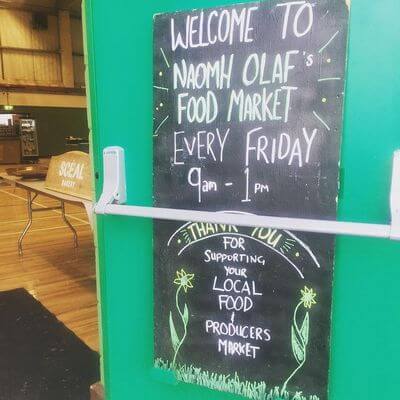 WELCOME TO
NAOMH OLAF's
FOOD MARKET
EVERY FRIDAY
9am - 1PM
THANK YOU
FOR
SUPPORTING
YOUR
LOCAL
FOOD
&
PRODUCERS
MARKET
SCÉAL
BAKERY